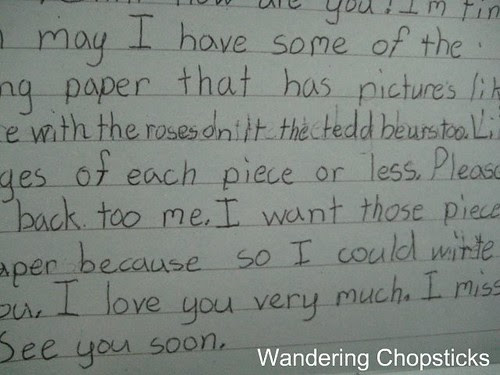 how are you! I'm fin
may I have some of the
ng paper that has picture's lik
e with the roses on it the tedd beurs too. Li
ges of each piece or less. Please
back too me. I want those piece
aper because so I could write
ou. I love you very much. I miss
See you soon.
Wandering Chopsticks